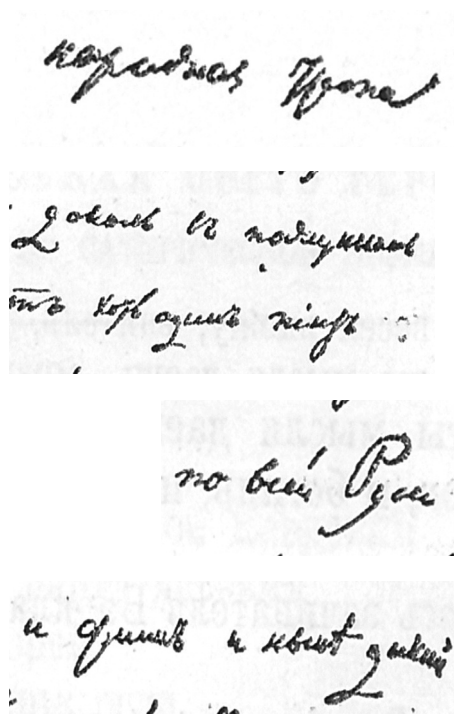 народная тропа
доколь въ подлунномъ
хоть одинъ піитъ
по всей Руси
и финнъ и нынѣ дикий